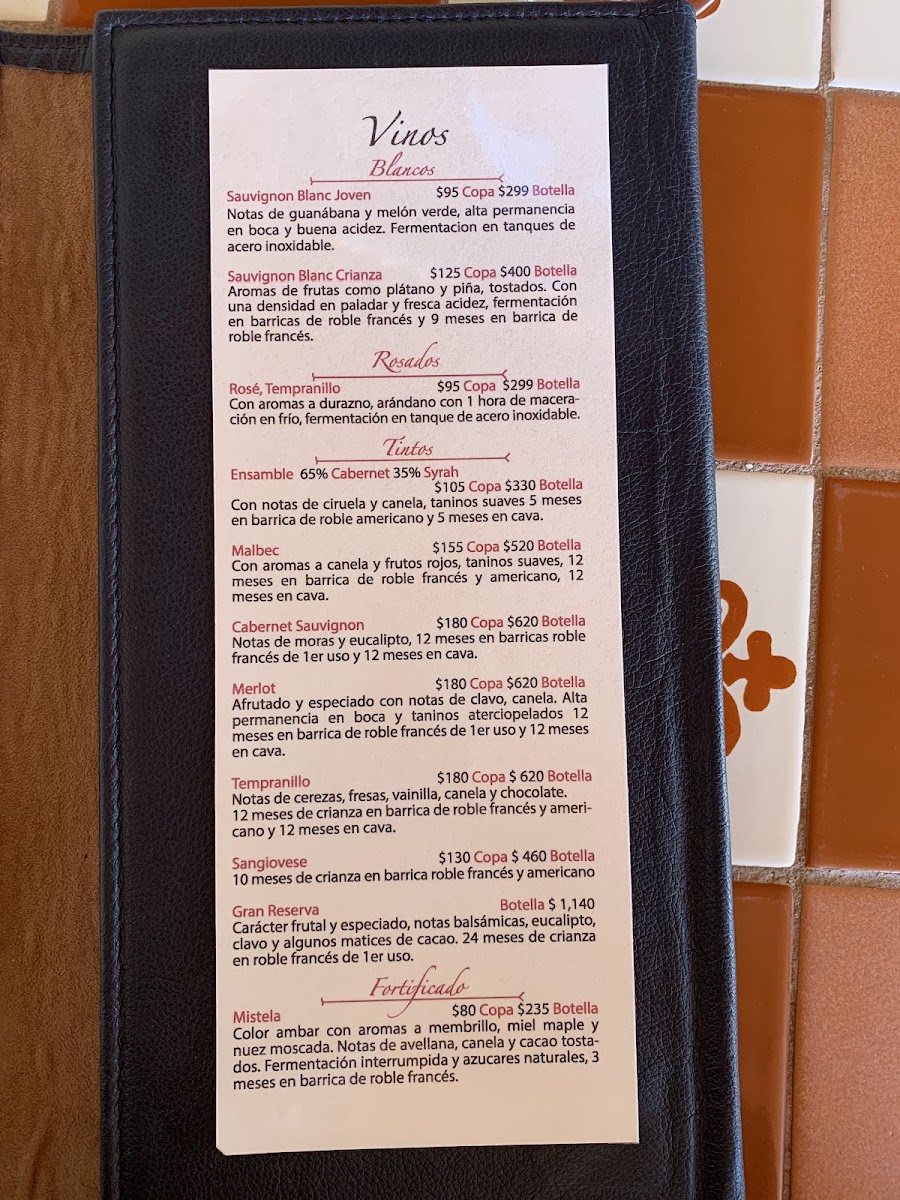 Vinos
Blancos
Sauvignon Blanc Joven $95 Copa $299 Botella
Notas de guanábana y melón verde, alta permanencia
en boca y buena acidez. Fermentacion en tanques de
acero inoxidable.
Sauvignon Blanc Crianza $125 Copa $400 Botella
Aromas de frutas como plátano y piña, tostados. Con
una densidad en paladar y fresca acidez, fermentación
en barricas de roble francés y 9 meses en barrica de
roble francés.
Rosados
Rosé, Tempranillo $95 Copa $299 Botella
Con aromas a durazno, arándano con 1 hora de macera-
ción en frío, fermentación en tanque de acero inoxidable.
Tintos
Ensamble 65% Cabernet 35% Syrah
$105 Copa $330 Botella
Con notas de ciruela y canela, taninos suaves 5 meses
en barrica de roble americano y 5 meses en cava.
Malbec $155 Copa $520 Botella
Con aromas a canela y frutos rojos, taninos suaves, 12
meses en barrica de roble francés y americano, 12
meses en cava.
Cabernet Sauvignon $180 Copa $620 Botella
Notas de moras y eucalipto, 12 meses en barricas roble
francés de 1er uso y 12 meses en cava.
Merlot $180 Copa $620 Botella
Afrutado y especiado con notas de clavo, canela. Alta
permanencia en boca y taninos aterciopelados 12
meses en barrica de roble francés de 1er uso y 12 meses
en cava.
Tempranillo $180 Copa $ 620 Botella
Notas de cerezas, fresas, vainilla, canela y chocolate.
12 meses de crianza en barrica de roble francés y ameri-
cano y 12 meses en cava.
Sangiovese $130 Copa $ 460 Botella
10 meses de crianza en barrica roble francés y americano
Gran Reserva Botella $ 1,140
Carácter frutal y especiado, notas balsámicas, eucalipto,
clavo y algunos matices de cacao. 24 meses de crianza
en roble francés de 1er uso.
Fortificado
Mistela $80 Copa $235 Botella
Color ambar con aromas a membrillo, miel maple y
nuez moscada. Notas de avellana, canela y cacao tosta-
dos. Fermentación interrumpida y azucares naturales, 3
meses en barrica de roble francés.